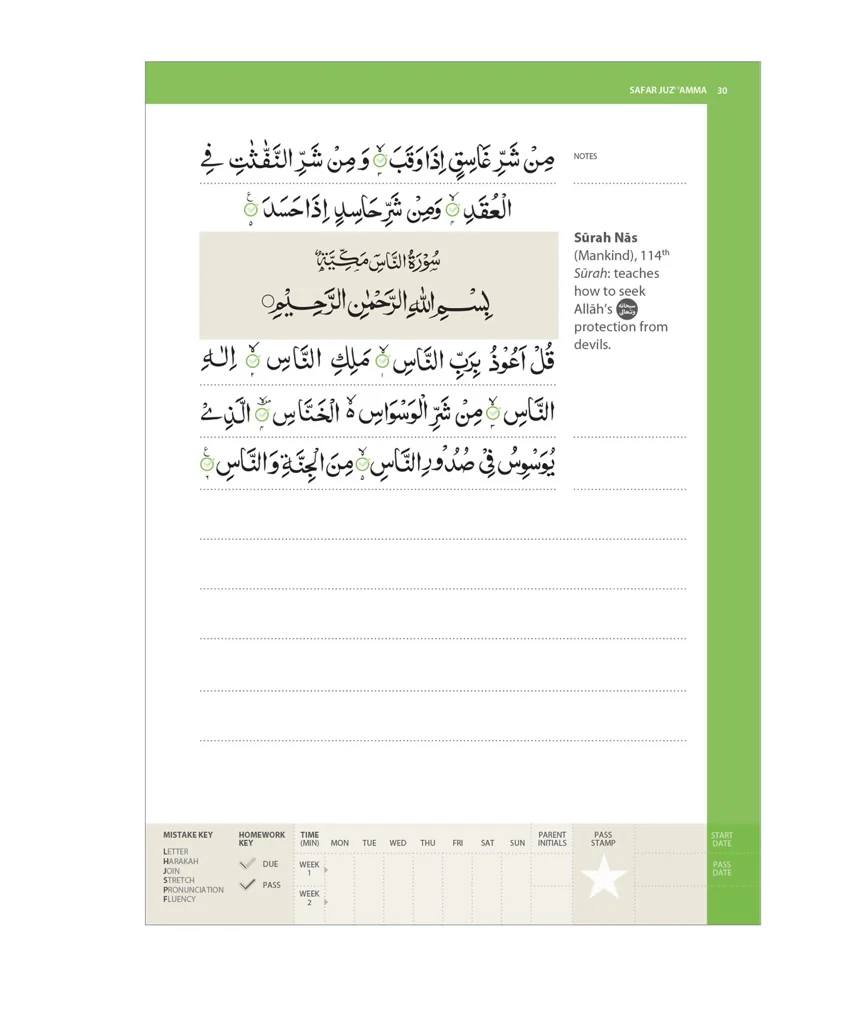 SAFAR JUZ' 'AMMA 30
مِنْ شَرِّ غَاسِقٍ اِذَا وَقَبَ ۙ۳ وَ مِنْ شَرِّ النَّفّٰثٰتِ فِي
الْعُقَدِ ۙ۴ وَمِنْ شَرِّ حَاسِدٍ اِذَا حَسَدَ ۠۵
سُوْرَةُ النَّاسِ مَكِّيَّةٌ
بِسْمِ اللهِ الرَّحْمٰنِ الرَّحِيْمِ
قُلْ اَعُوْذُ بِرَبِّ النَّاسِ ۙ۱ مَلِكِ النَّاسِ ۙ۲ اِلٰهِ
النَّاسِ ۙ۳ مِنْ شَرِّ الْوَسْوَاسِ ۙ۬ الْخَنَّاسِ ۴ الَّذِيْ
يُوَسْوِسُ فِيْ صُدُوْرِ النَّاسِ ۙ۵ مِنَ الْجِنَّةِ وَ النَّاسِ ۶
NOTES
Sūrah Nās
(Mankind), 114th
Sūrah: teaches
how to seek
Allāh’s سبحانه وتعالى
protection from
devils.
MISTAKE KEY
LETTER
HARAKAH
JOIN
STRETCH
PRONUNCIATION
FLUENCY
HOMEWORK
KEY
DUE
PASS
TIME
(MIN) MON TUE WED THU FRI SAT SUN
WEEK
1
WEEK
2
PARENT
INITIALS
PASS
STAMP
START
DATE
PASS
DATE